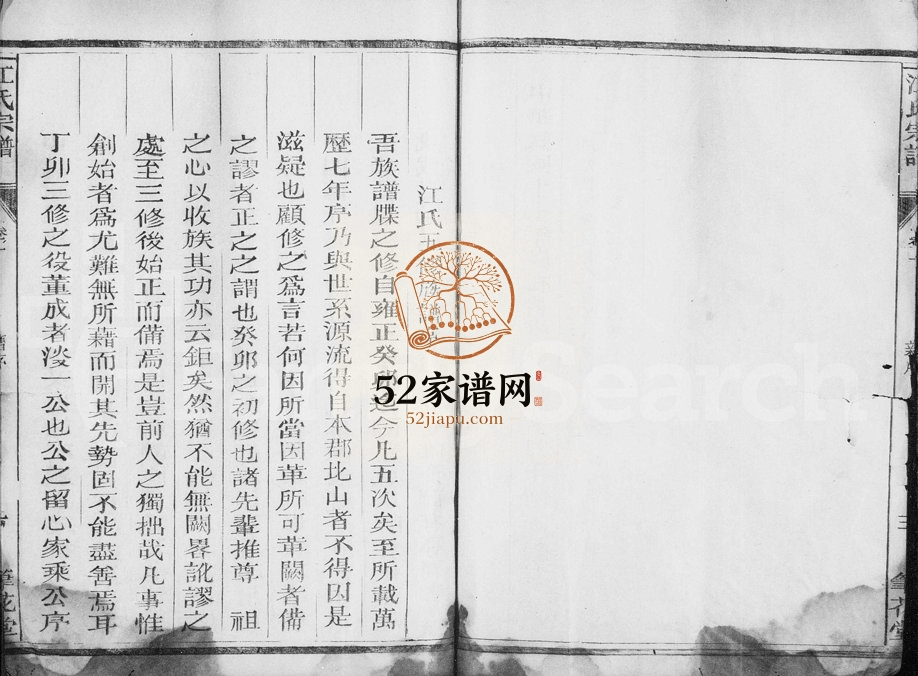 江氏五修
吾族譜牒之修自雍正癸卯迄今凡五次矣至所載萬
歷七年序乃與世系源流得自本郡北山者不得因是
滋疑也顧修之為言若何因所當因革所可革闕者備
之謬者正之之謂也癸卯之初修也諸先輩推尊 祖
之心以收族其功亦云鉅矣然猶不能無闕畧訛謬之
處至三修後始正而備焉是豈前人之獨拙哉凡事惟
創始者為尤難無所藉而開其先勢固不能盡善焉耳
丁卯三修之役董成者淡一公也公之留心家乘公序
江氏宗譜
卷一
舊序
筆花堂
江氏宗譜
三
筆花堂
52家谱网
52jiapu.com
Search